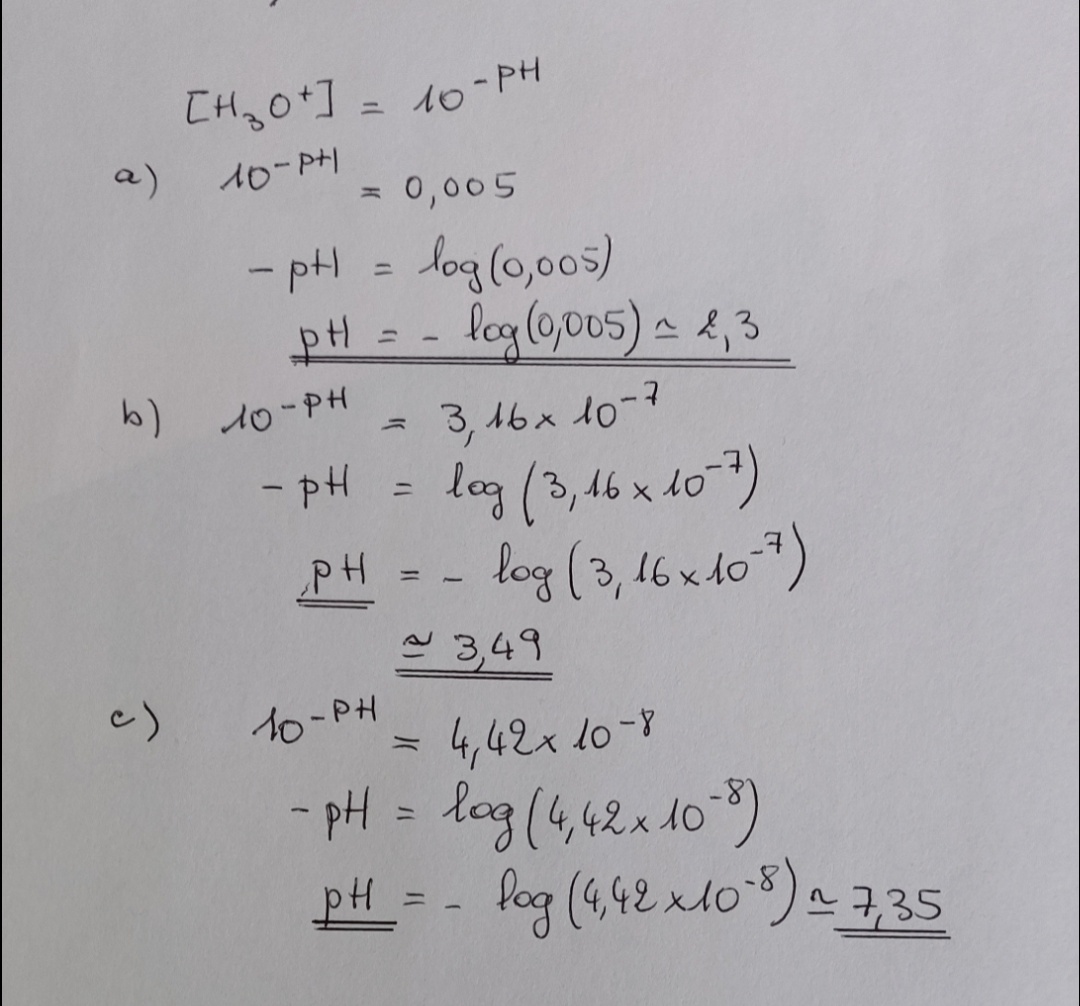 [H₃O⁺] = 10⁻ᵖᴴ
a) 10⁻ᵖᴴ = 0,005
- pH = log(0,005)
pH = - log(0,005) ≃ 2,3
b) 10⁻ᵖᴴ = 3,16 × 10⁻⁷
- pH = log (3,16 × 10⁻⁷)
pH = - log (3,16 × 10⁻⁷)
≃ 3,49
c) 10⁻ᵖᴴ = 4,42 × 10⁻⁸
- pH = log (4,42 × 10⁻⁸)
pH = - log (4,42 × 10⁻⁸) ≃ 7,35